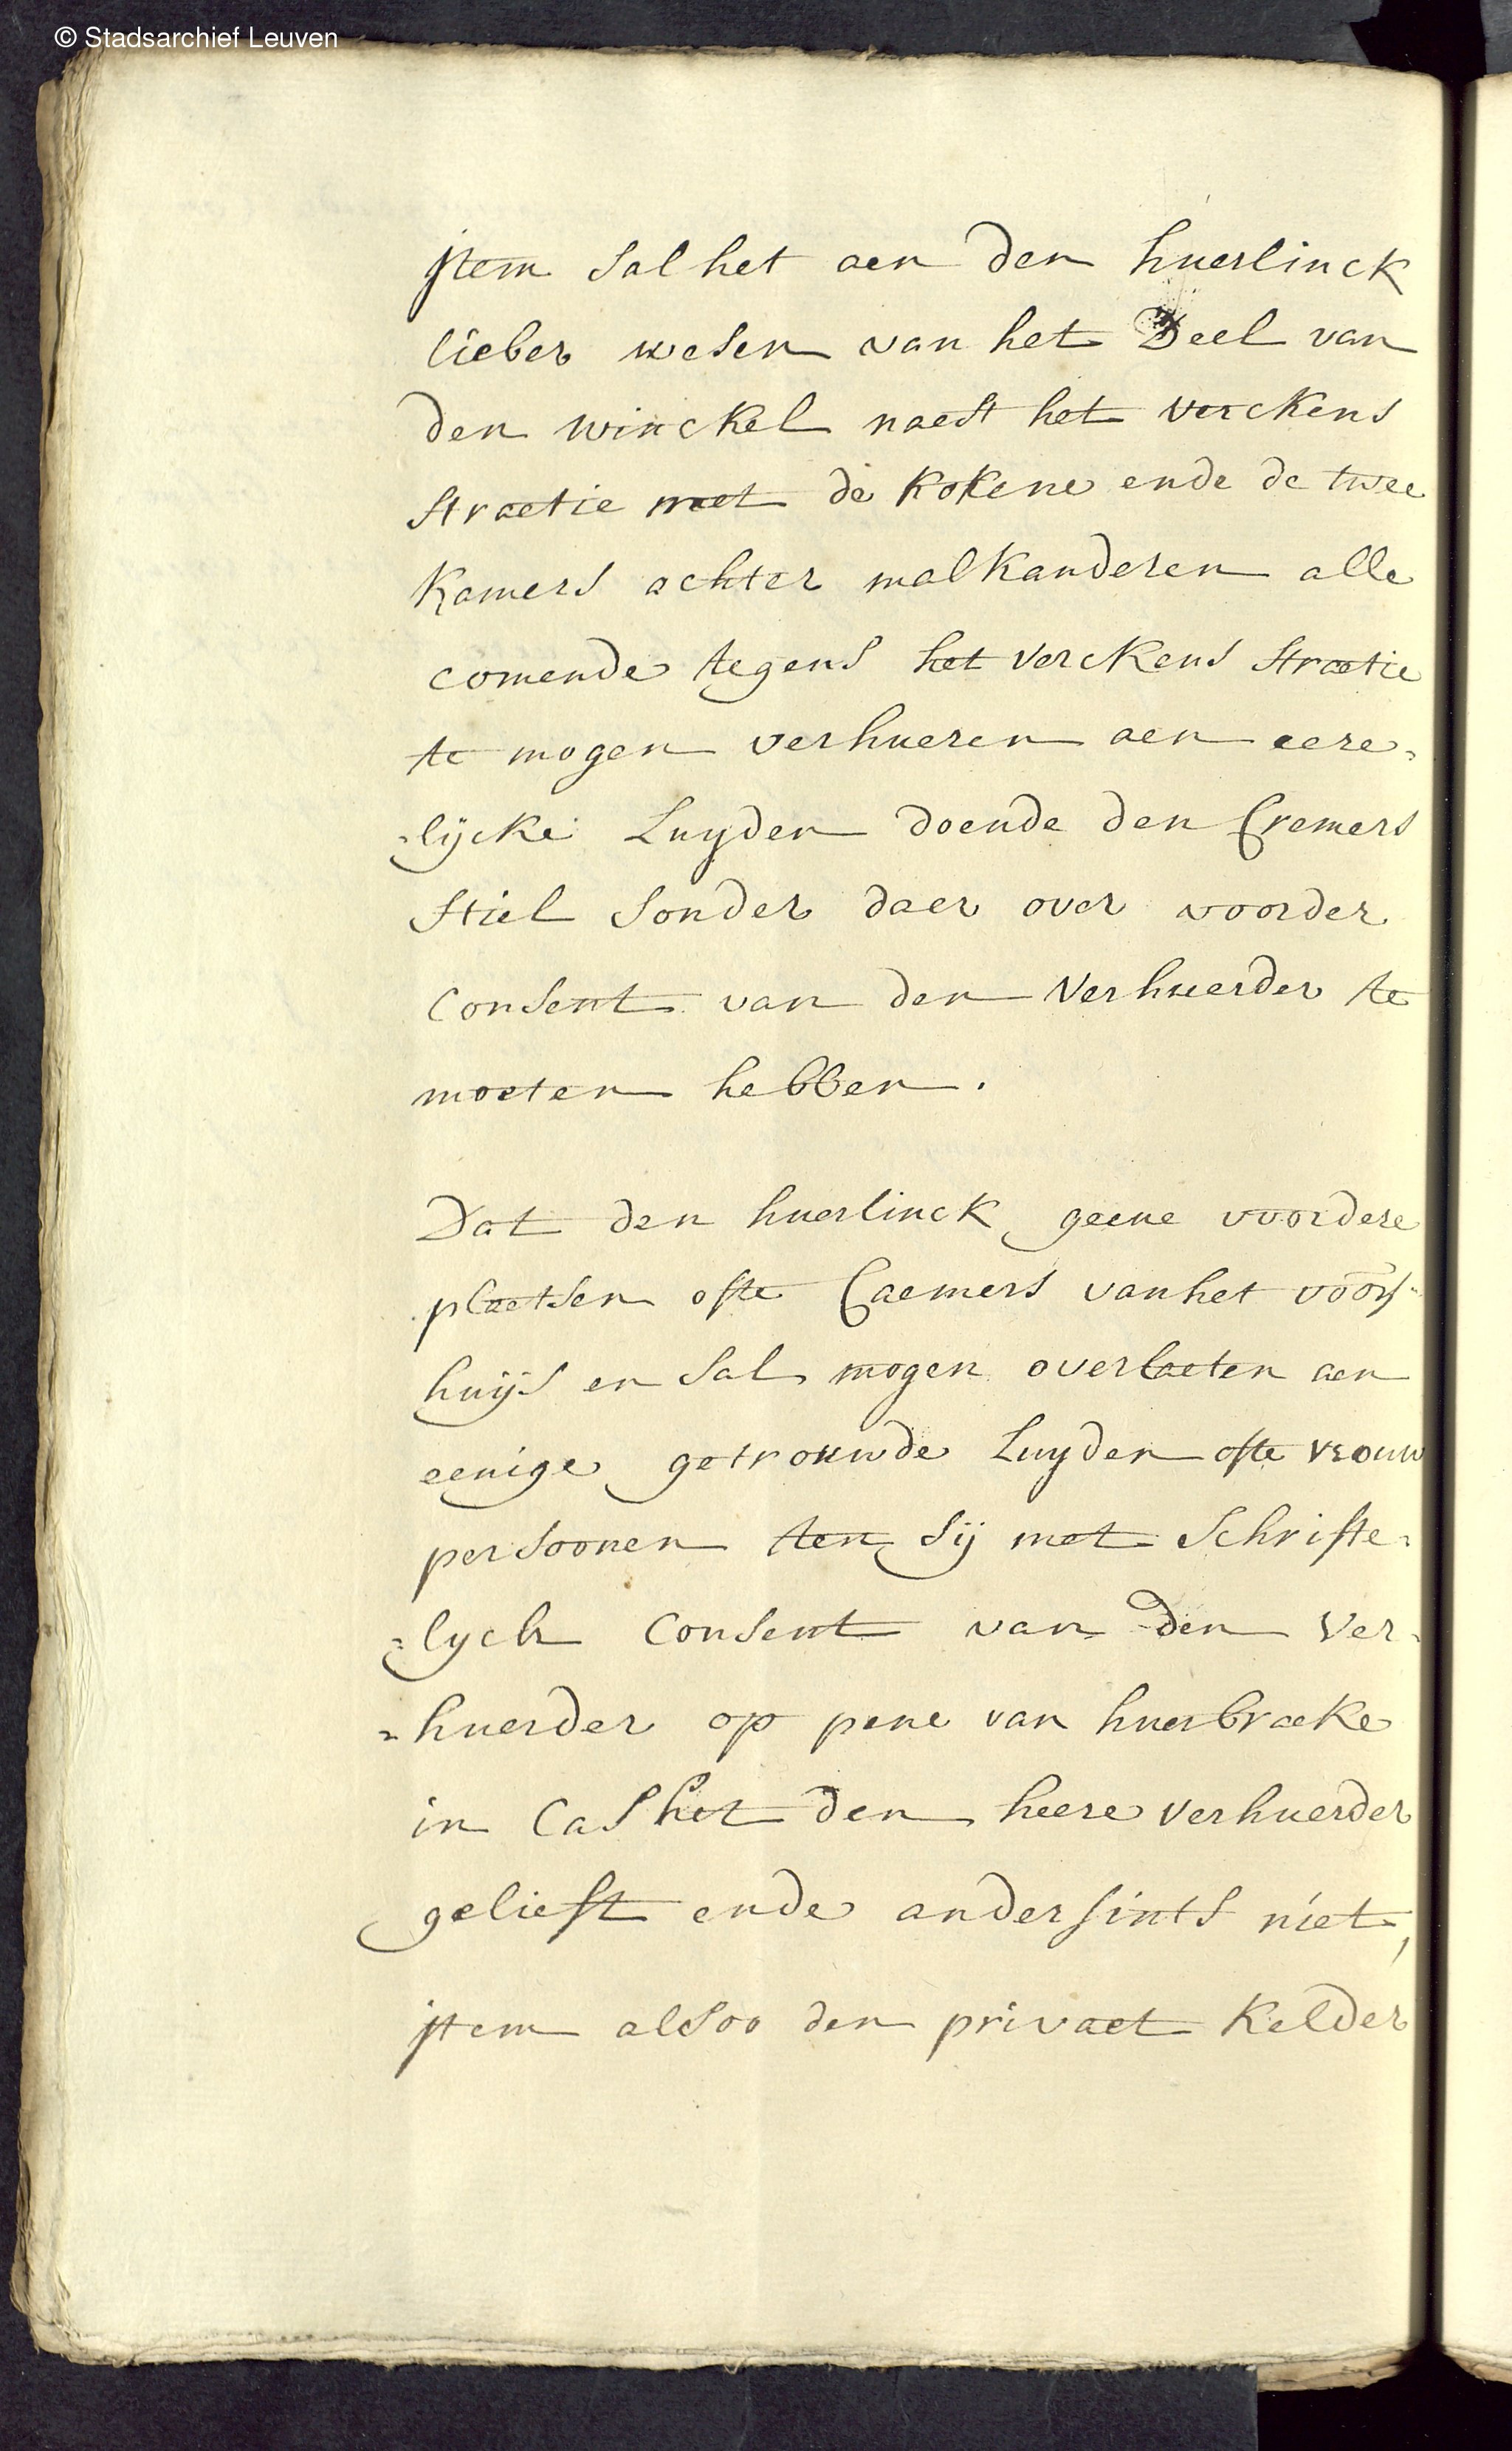 © Stadsarchief Leuven
jtem sal het aen den huerlinck
lieber wesen van het Deel van
den winckel naest het verckens
straetie met de kokene ende de twee
Kamers achter malkanderen alle
comende tegens het verckens straetie
te mogen verhueren aen eere„
„lijcke Luyden doende den Cremers
stiel sonder daer over voorder
Consent van den Verhuerder te
moeten hebben.
Dat den huerlinck geene voordere
plaetsen ofte Caemers van het voors
huijs en sal mogen overlaeten aen
eenige getrouwde Luyden ofte vrouw
persoonen ten sij met schrifte„
„lyck Consent van den Ver„
„huerder op pene van huerbraeke
in Cas het den heere verhuerder
gelieft ende andersints niet,
jtem alsoo den privaet Kelder